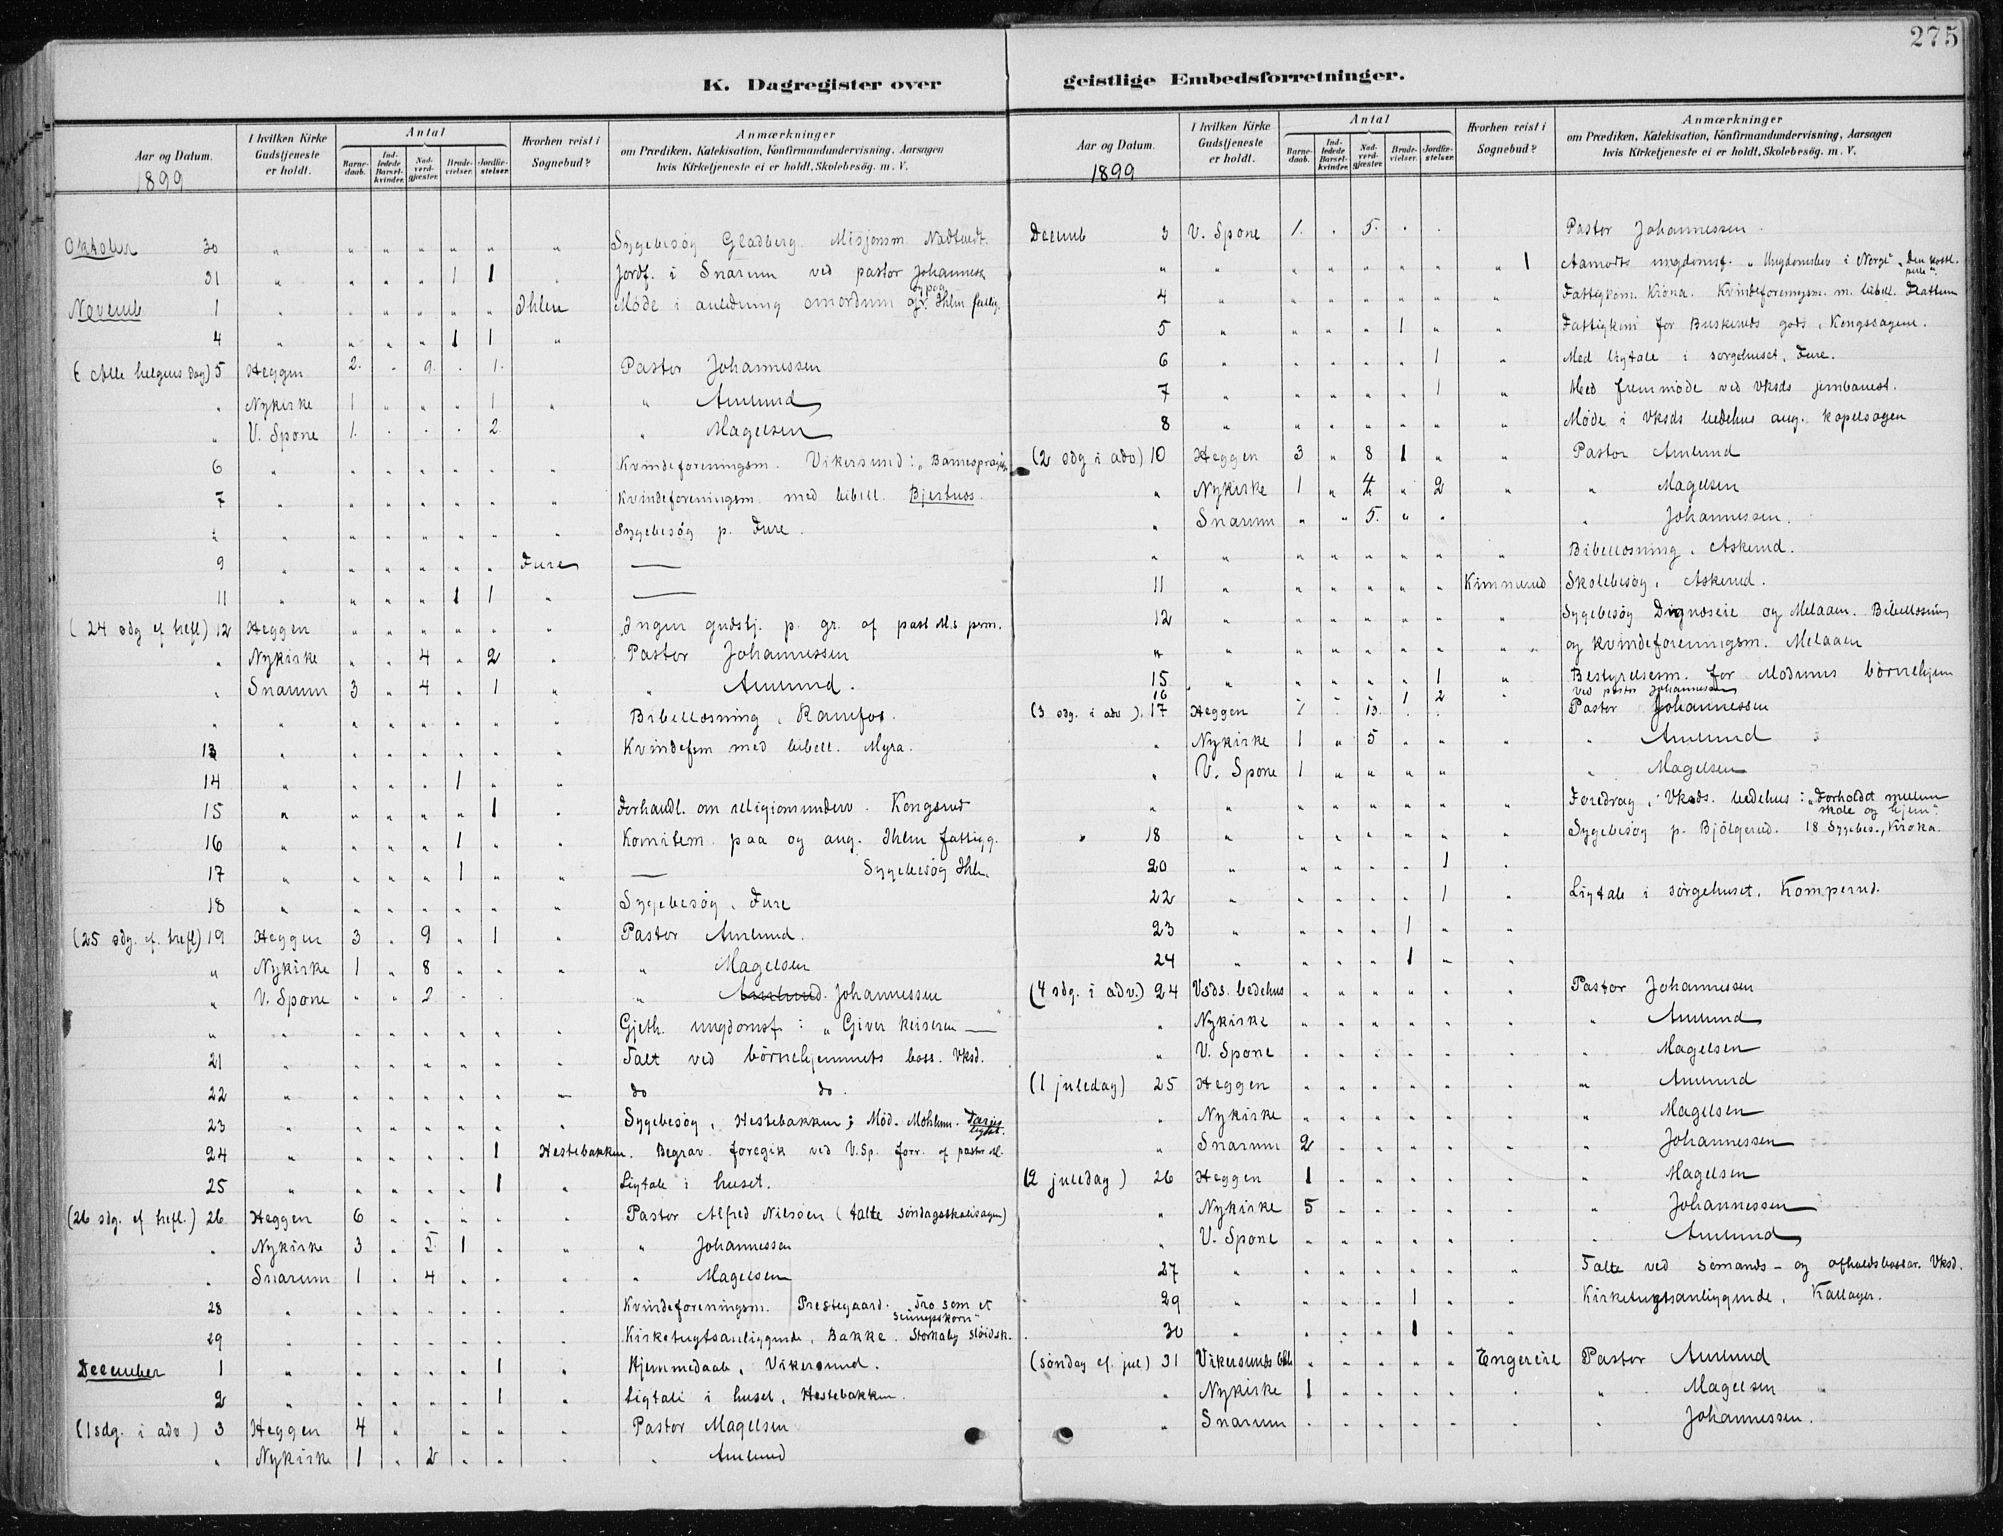 275
K. Dagregister over geistlige Embedsforretninger.
Aar og Datum. | I hvilken Kirke Gudstjeneste er holdt. | Antal | Barnedaab. | Indledede Barselkvinder. | Nadverdgjester. | Brudevielser. | Jordfæstelser. | Hvorhen reist i Sognebud? | Anmærkninger om Prædiken, Katekisation, Konfirmandundervisning, Aarsagen hvis Kirketjeneste ei er holdt, Skolebesøg. m. V.
1899
Oktober 30 " " " " " " " Sygebesøg Gladberg. Misjonsm.
31 " " " " 1 1 " Jordf. i Snarum ved pastor Johannesen
Novemb 1 " " " " " " Ihlen Møde i anledning
4 " " " " 1 1 "
( Alle helgens dag) 5 Heggen 2. " 9. . 1. Pastor Johannessen
" Nykirke 1 " " " 1 " " Amlund
" V. Spone 1. . . . 2. " Magelsen
6 " " " " " " " Kvindeforeningsm. Vikersund:
7 " " " " " " " Kvindeforeningsm. med bibell. Bjertnes.
" " " " " " " Sygebesøg p. Fure.
9 " " " " " " Fure ———
11 " " " " 1 1 " ———
( 24 sdg ef trefl) 12 Heggen " " " " " " Ingen gudstj. p. gr. af past M.s
" Nykirke " " 4 " 2 " Pastor Johannessen
" Snarum 3 " 4 " 1 " " Amlund.
" " " " " " " " Bibellæsning, Ramfos.
13 " " " " " " " Kvindefsm med bibell. Myra.
14 " " " " 1 " "
15 " " " " " 1 " Forhandl. om religionsunderv. Kongsrud
16 " " " " 1 " " Komitem. paa og ang. Ihlen fattigg.
17 " " " " 1 " " ——— Sygebesøg Ihle.
18 " " " " " " " Sygebesøg, Fure
(25 sdg. ef. trefl) 19 Heggen 3 " 9 " 1 " Pastor Amlund.
" Nykirke 1 " 8 " " " " Magelsen
" V. Spone " " 2 . . " Amlund. Johannessen
" " " " " " " " Gjeth. ungdomsf: " Giver keiseren —"
21 " " " " " " " Talt ved børnehjemmets Vksd.
22 " " " " " " " do do.
23 " " " " " " " Sygebesøg, Hestebakken; Mød. Mohlum.
24 " " " " " 1 Hestebakken. Begrav. foregik ved V.Sp. forr. af pastor M.
25 " " " " " 1 " Ligtale i huset.
(26 sdg. ef trefl.) 26 Heggen 6 " " " " " Pastor Alfred Nilsöen (talte søndagsskolesagen)
" Nykirke 3 " 5 1 " " " Johannessen
" Snarum 1 " 4 " " " " Magelsen
28 " " " " " " " Kvindeforeningsm. Prestegaard. "Tro som et sennepskorn"
29 " " " " " " " Kirketugtsanliggende, Bakke. sløidsk.
December 1 " " " " " 1 " Hjemmedaab, Vikersund.
2 " " " " " 1 " Ligtale i huset, Hestebakken.
(1 sdg. i adv ) 3 Heggen 4 " " " " " Pastor Magelsen
" Nykirke 1 " 2 " " " " Amlund
Aar og Datum. | I hvilken Kirke Gudstjeneste er holdt. | Antal | Barnedaab. | Indledede Barselkvinder. | Nadverdgjester. | Brudevielser. | Jordfæstelser. | Hvorhen reist i Sognebud? | Anmærkninger om Prædiken, Katekisation, Konfirmandundervisning, Aarsagen hvis Kirketjeneste ei er holdt, Skolebesøg. m. V.
1899
Decemb 3 V. Spone 1. . 5. . . Pastor Johannessen.
" " " " " " " " 1 Aamodts ungdomsf. "Ungdomslev i Norge"
4 " " " " " " " Fattigkom. Kröna. Kvindeforeningsm. m. bibell.
5 " " " " 1 " " Fattigkom for Buskeruds gods, Kongssagene.
6 " " " " " 1 " Med ligtale i sørgehuset, Fure.
7 " " " " " 1 " Med fremmøde ved Vksds jernbanest.
8 " " " " " " " Møde i Vksds bedehus ang. kapelsagen
(2 sdg i adv) 10 Heggen 3 " 8 1 " " Pastor Amlund
" Nykirke 1 " 4 " 2 " " Magelsen
" Snarum " " 5. " " " Johannessen.
" " " " " " " " Bibellæsning, Askerud.
11 " " " " " " Kimmerud Skolebesøg, Askerud.
12 " " " " " " " Sygebesøg og Melaaen. Bibellæsning
" " " " " " " " og kvindeforeningsm. Melaaen
15 " " " " " 1 " Bestyrelsesm. for Modums børnehjem
16 " " " " 1 2 " ved pastor Johannessen
(3 sdg. i adv ). 17 Heggen 1 " 13. . . Pastor Johannessen
" Nykirke 1 " 5 " " " " Amlund
" V. Spone 1 " " " " " Magelsen
" " " " " " " " Foredrag, Vksds. bedehus: "Forholdet mellem skole og hjem".
" 18 " " " " " " " Sygebesøg p. Bjölgerud. 18 Sygebes.,
20 " " " " " 1 "
22 " " " " " 1 " Ligtale i sørgehuset, Komperud.
23 " " " " 1 " "
24 " " " " 1 " "
(4 sdg. i adv.) 24 Vsds. bedehus " " " " " " Pastor Johannessen
" Nykirke " " " " " " " Amlund
" V. Spone " " " " " " Magelsen
(1 juledag) 25 Heggen " " " " " " Amlund
" Nykirke " " " " " " Magelsen
" Snarum 2 " " " " " Johannessen
(2 juledag ) 26 Heggen 1 " " " " " Magelsen
" Nykirke 5 " " " " " " Johannessen
" V. Spone " " " " " " Amlund
27 " " " " " " " Talte ved sømands- og Vksd.
29 " " " " 1 " " Kirketugtsanliggende, Kallager.
30 " " " " 1 " "
(søndag ef. jul) 31 Vikersunds " " " " " Engereie Pastor Amlund
" Nykirke 1 " " " " " " Magelsen
" Snarum " " " " " " Johannessen.